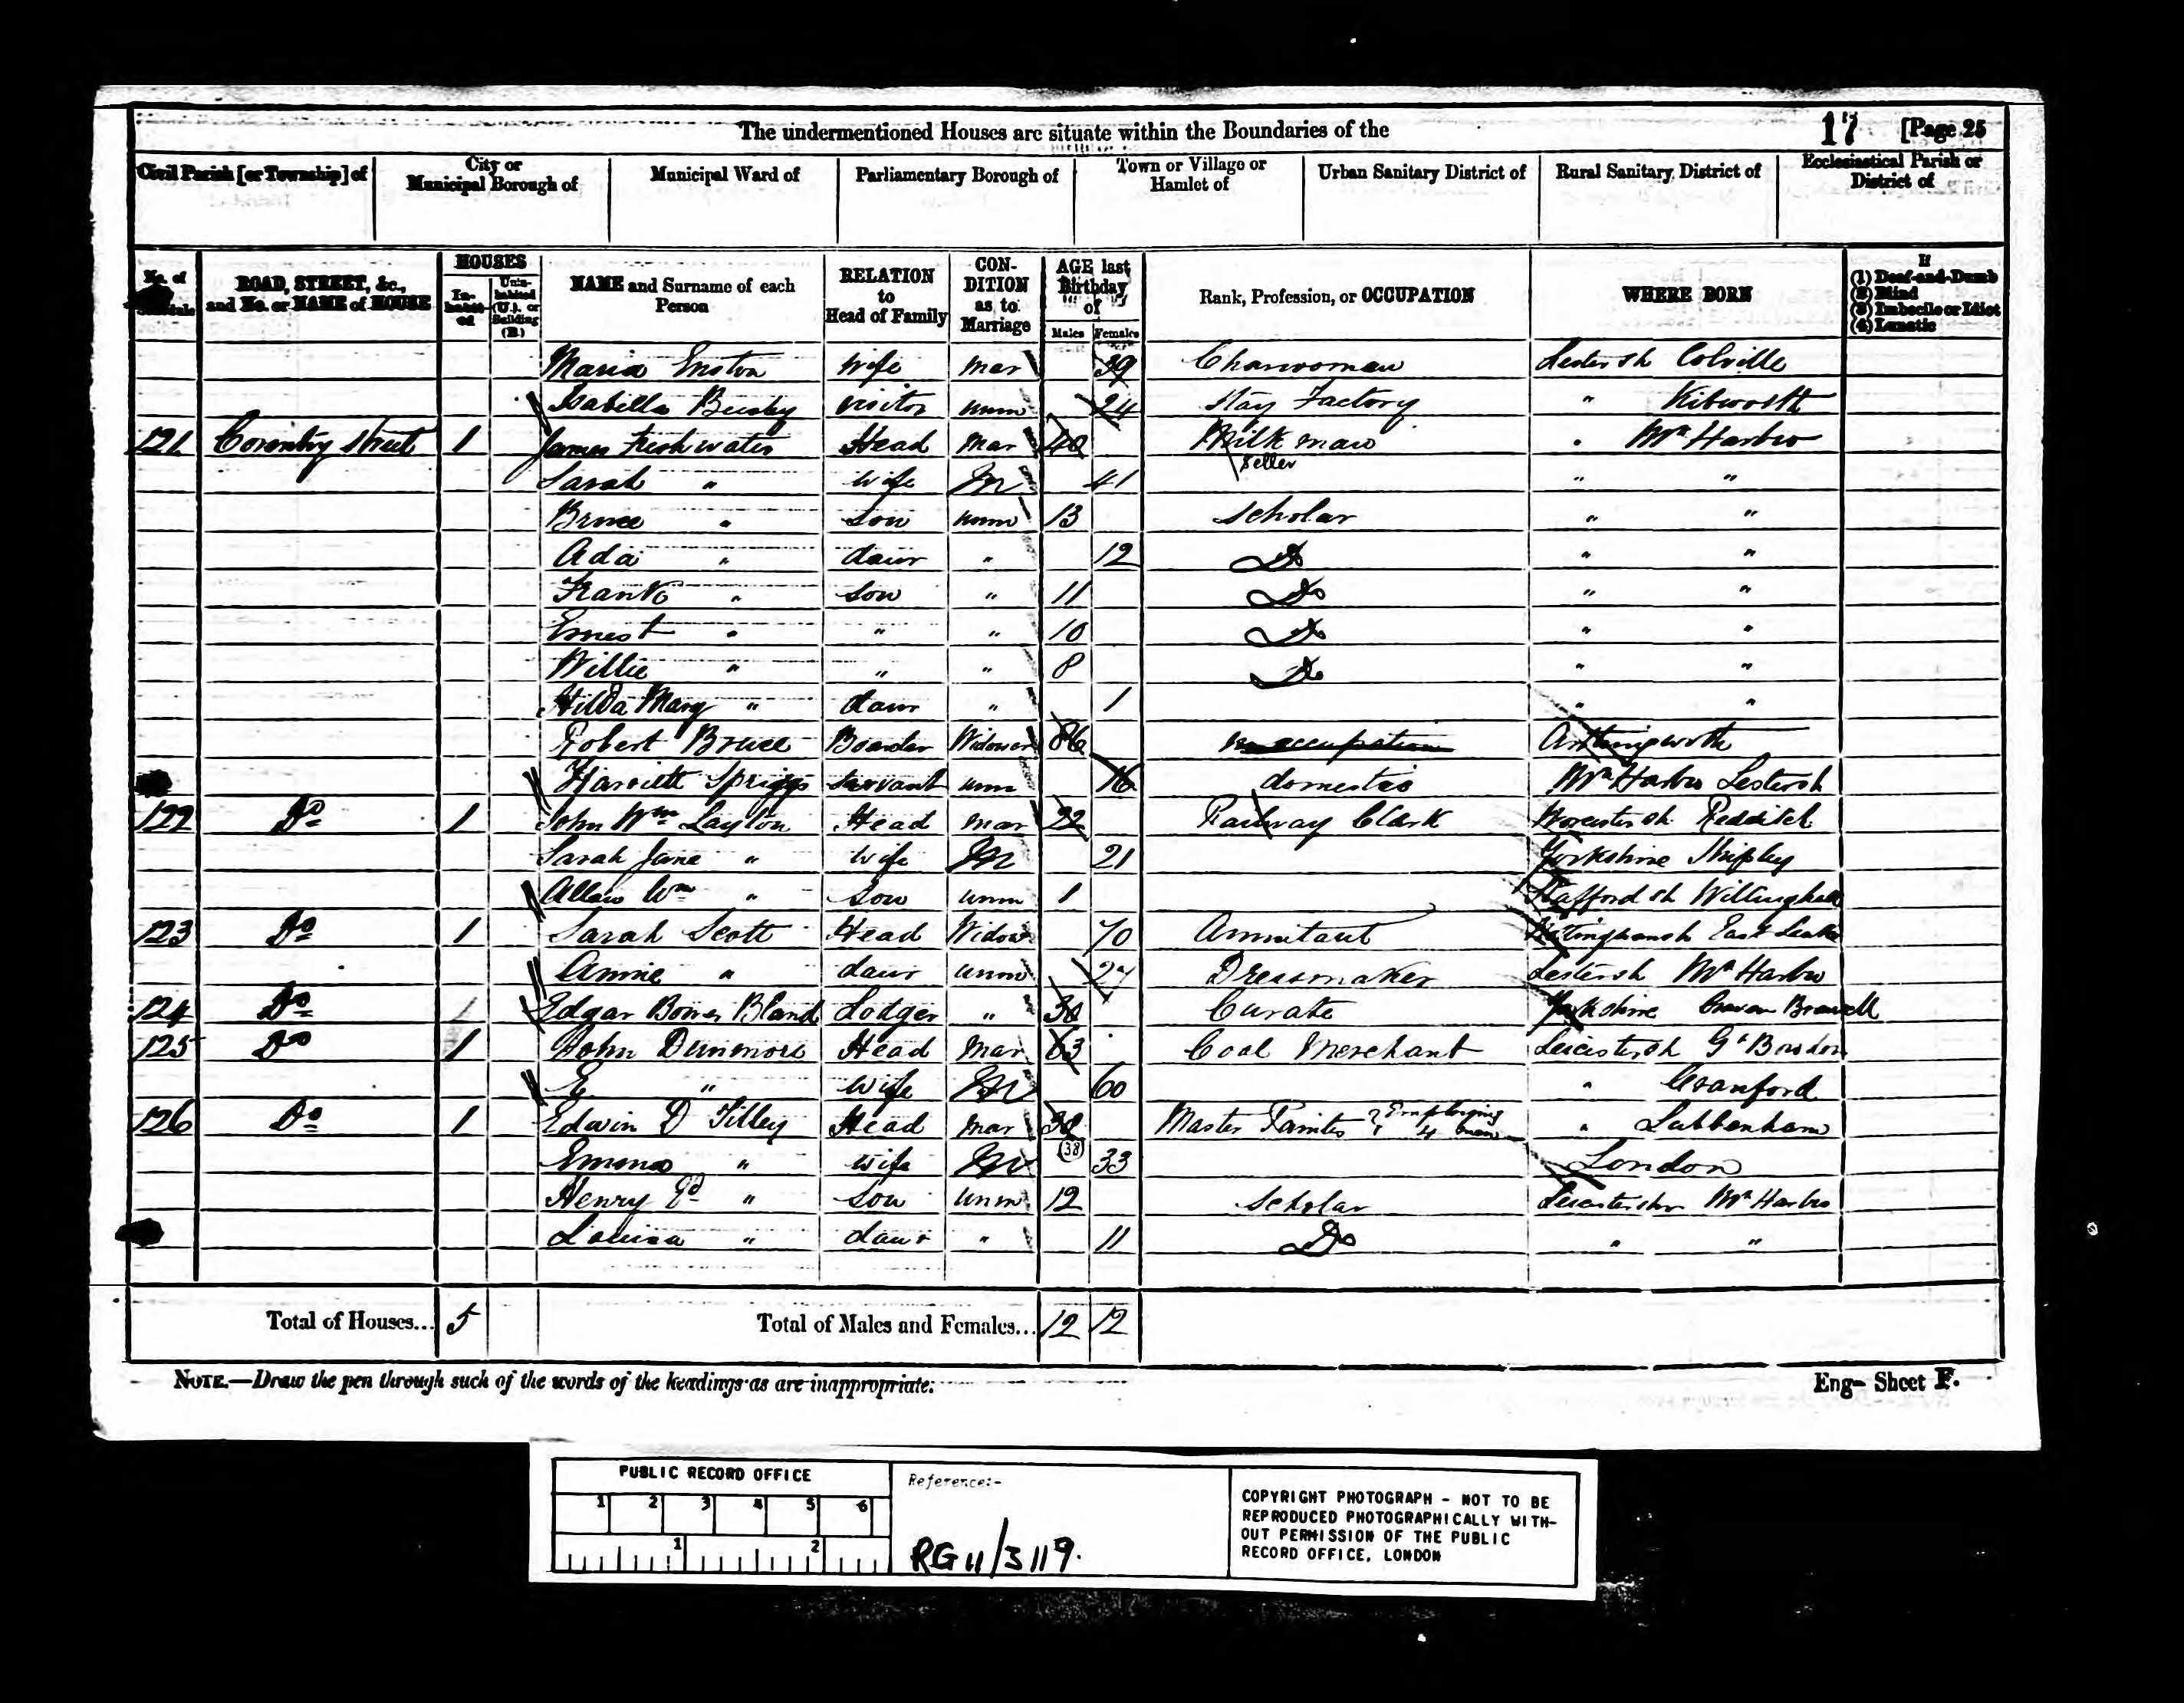 The undermentioned Houses are situate within the Boundaries of the 17 [Page 25
Civil Parish [or Township] of
City or Municipal Borough of
Municipal Ward of
Parliamentary Borough of
Town or Village or Hamlet of
Urban Sanitary District of
Rural Sanitary District of
Ecclesiastical Parish or District of
No. of Schedule
ROAD, STREET, &c., and No. or NAME of HOUSE
HOUSES
Inhabited
Uninhabited (U.), or Building (B.)
NAME and Surname of each Person
RELATION to Head of Family
CONDITION as to Marriage
AGE last Birthday of
Males Females
Rank, Profession, or OCCUPATION
WHERE BORN
If
(1) Deaf-and-Dumb
(2) Blind
(3) Imbecile or Idiot
(4) Lunatic
Maria wife mar 39 Charwoman Lestersh Colville
Isabella Busby visitor unm 24 Stay Factory " Kibworth
121 Coventry Street 1 James Freshwater Head mar 40 Milk man " Mt Harbro
Seller
Sarah " wife M 41 " "
Bruce " Son unm 13 Scholar " "
Ada " daur " 12 Do " "
Frank " Son " 11 Do " "
Ernest " " " 10 Do " "
Willie " " " 8 Do " "
Hilda Mary " daur " 1 " "
Robert Bruce Boarder Widower 86 no occupation Arthingworth
Harriett Spriggs Servant unm 16 domestic Mt Harbro Lestersh
122 Do 1 John Wm Layton Head mar 22 Railway Clerk Worcestersh Redditch
Sarah Jane " wife M 21 Yorkshire Shipley
Allan Wm " Son unm 1 Staffordsh Willinghall
123 Do 1 Sarah Scott Head Widow 70 Annuitant Nottinghamsh East Leake
Annie " daur unm 27 Dressmaker Lestersh Mt Harbro
124 Do Edgar Bower Bland Lodger " 30 Curate Yorkshire
125 Do 1 John Dunmore Head mar 63 Coal Merchant Leicestersh Gt Bowdon
E. " wife M 60 " Cranford
126 Do 1 Edwin D Tilley Head mar 38 Master Painter Employing 4 men " Lubbenham
Emma " wife M (38) 33 London
Henry Ed " Son unm 12 Scholar Leicestershr Mt Harbro
Louisa " daur " 11 Do " "
Total of Houses... 5 Total of Males and Females... 12 12
NOTE.—Draw the pen through such of the words of the headings as are inappropriate.
Eng- Sheet F.
PUBLIC RECORD OFFICE
1 2 3 4 5 6
1 2
Reference:-
RG 11/3119.
COPYRIGHT PHOTOGRAPH - NOT TO BE
REPRODUCED PHOTOGRAPHICALLY WITH-
OUT PERMISSION OF THE PUBLIC
RECORD OFFICE, LONDON